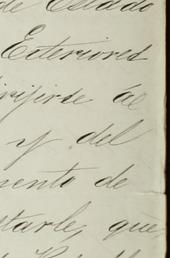 de Estado
Exteriores
dirijirse ál
y del
mento de
tarle, que